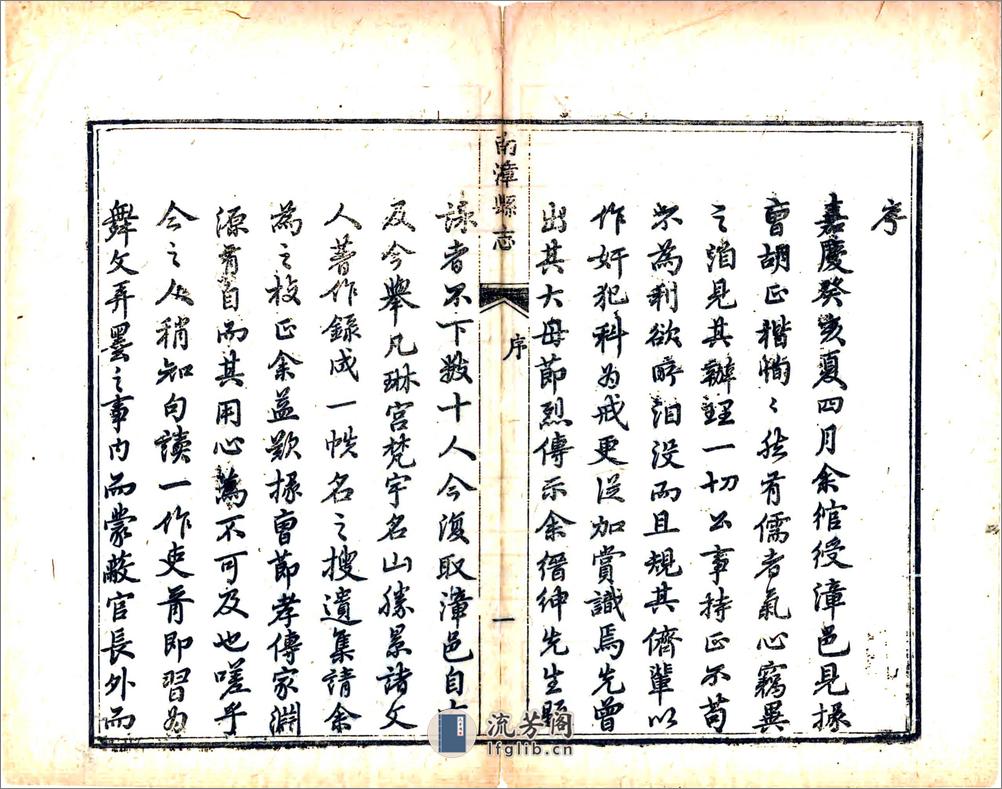 序
嘉慶癸亥夏四月余綰綬漳邑見掾
曹胡正楷恂〻然有儒者氣心竊異
之洎見其辦理一切公事持正不苟
不為利欲所汨没而且規其儕輩以
作奸犯科為戒更從加賞識焉先曾
出其大母節烈傳示余縉紳先生題
南漳縣志
序
一
詠者不下数十人今復取漳邑自古
及今舉凡琳宮梵宇名山勝景諸文
人著作錄成一帙名之搜遺集請余
為之校正余益歎掾曹節孝傳家淵
源有自而其用心為不可及也嗟乎
今之人稍知句讀一作吏胥即習為
舞文弄墨之事内而蒙蔽官長外而
流芳阁
lfglib.cn